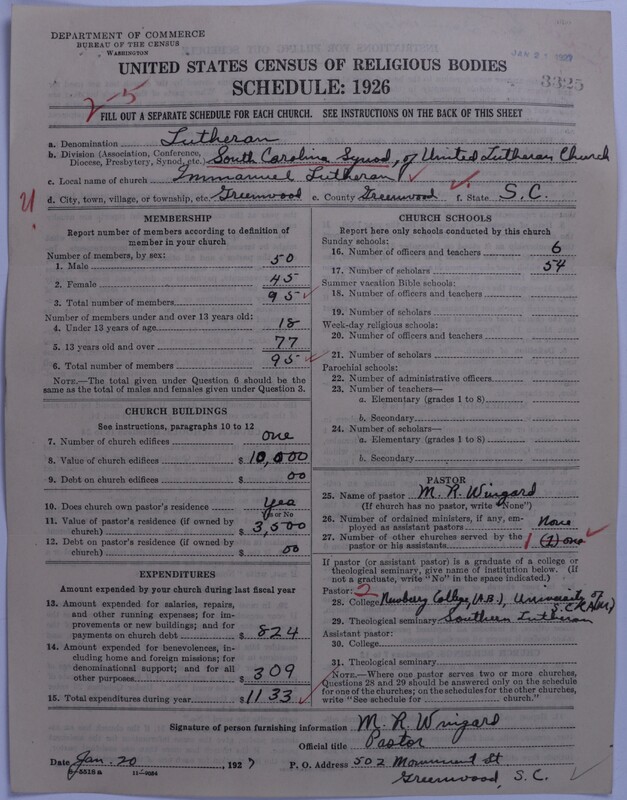 DEPARTMENT OF COMMERCE
BUREAU OF THE CENSUS
WASHINGTON
UNITED STATES CENSUS OF RELIGIOUS BODIES
SCHEDULE: 1926
3325
2-5
FILL OUT A SEPARATE SCHEDULE FOR EACH CHURCH. SEE INSTRUCTIONS ON THE BACK OF THIS SHEET
a. Denomination Lutheran
b. Division (Association, Conference, Diocese, Presbytery, Synod, etc.) South Carolina Synod, of United Lutheran Church
c. Local name of church Immanuel Lutheran
d. City, town, village, or township, etc. Greenwood e. County Greenwood f. State S.C.
MEMBERSHIP
Report number of members according to definition of
member in your church
Number of members, by sex:
1. Male 50
2. Female 45
3. Total number of members 95
Number of members under and over 13 years old:
4. Under 13 years of age 18
5. 13 years old and over 77
6. Total number of members 95
NOTE.—The total given under Question 6 should be the
same as the total of males and females given under Question 3.
CHURCH BUILDINGS
See instructions, paragraphs 10 to 12
7. Number of church edifices one
8. Value of church edifices $ 10,000
9. Debt on church edifices $ 00
10. Does church own pastor's residence Yes
Yes or No
11. Value of pastor's residence (if owned by
church) $ 3,500
12. Debt on pastor's residence (if owned by
church) $ 00
EXPENDITURES
Amount expended by your church during last fiscal year
13. Amount expended for salaries, repairs,
and other running expenses; for im-
provements or new buildings; and for
payments on church debt $ 824
14. Amount expended for benevolences, in-
cluding home and foreign missions; for
denominational support; and for all
other purposes $ 309
15. Total expenditures during year $ 1133
CHURCH SCHOOLS
Report here only schools conducted by this church
Sunday schools:
16. Number of officers and teachers 6
17. Number of scholars 54
Summer vacation Bible schools:
18. Number of officers and teachers
19. Number of scholars
Week-day religious schools:
20. Number of officers and teachers
21. Number of scholars
Parochial schools:
22. Number of administrative officers
23. Number of teachers—
a. Elementary (grades 1 to 8)
b. Secondary
24. Number of scholars—
a. Elementary (grades 1 to 8)
b. Secondary
PASTOR
25. Name of pastor M. R. Wingard
(If church has no pastor, write "None")
26. Number of ordained ministers, if any, em-
ployed as assistant pastors None
27. Number of other churches served by the
pastor or his assistants 1 (1) one
If pastor (or assistant pastor) is a graduate of a college or
theological seminary, give name of institution below. (If
not a graduate, write "No" in the space indicated.)
Pastor: 2
28. College Newberry College, (A.B.), University of
S.C. (A.M.)
29. Theological seminary Southern Lutheran
Assistant pastor:
30. College
31. Theological seminary
NOTE.—Where one pastor serves two or more churches,
Questions 28 and 29 should be answered only on the schedule
for one of the churches; on the schedules for the other churches,
write "See schedule for church."
Signature of person furnishing information M. R. Wingard
Official title Pastor
Date Jan. 20, 1927 P. O. Address 502 Monument St
8-5518 a 11-9084
Greenwood, S.C.